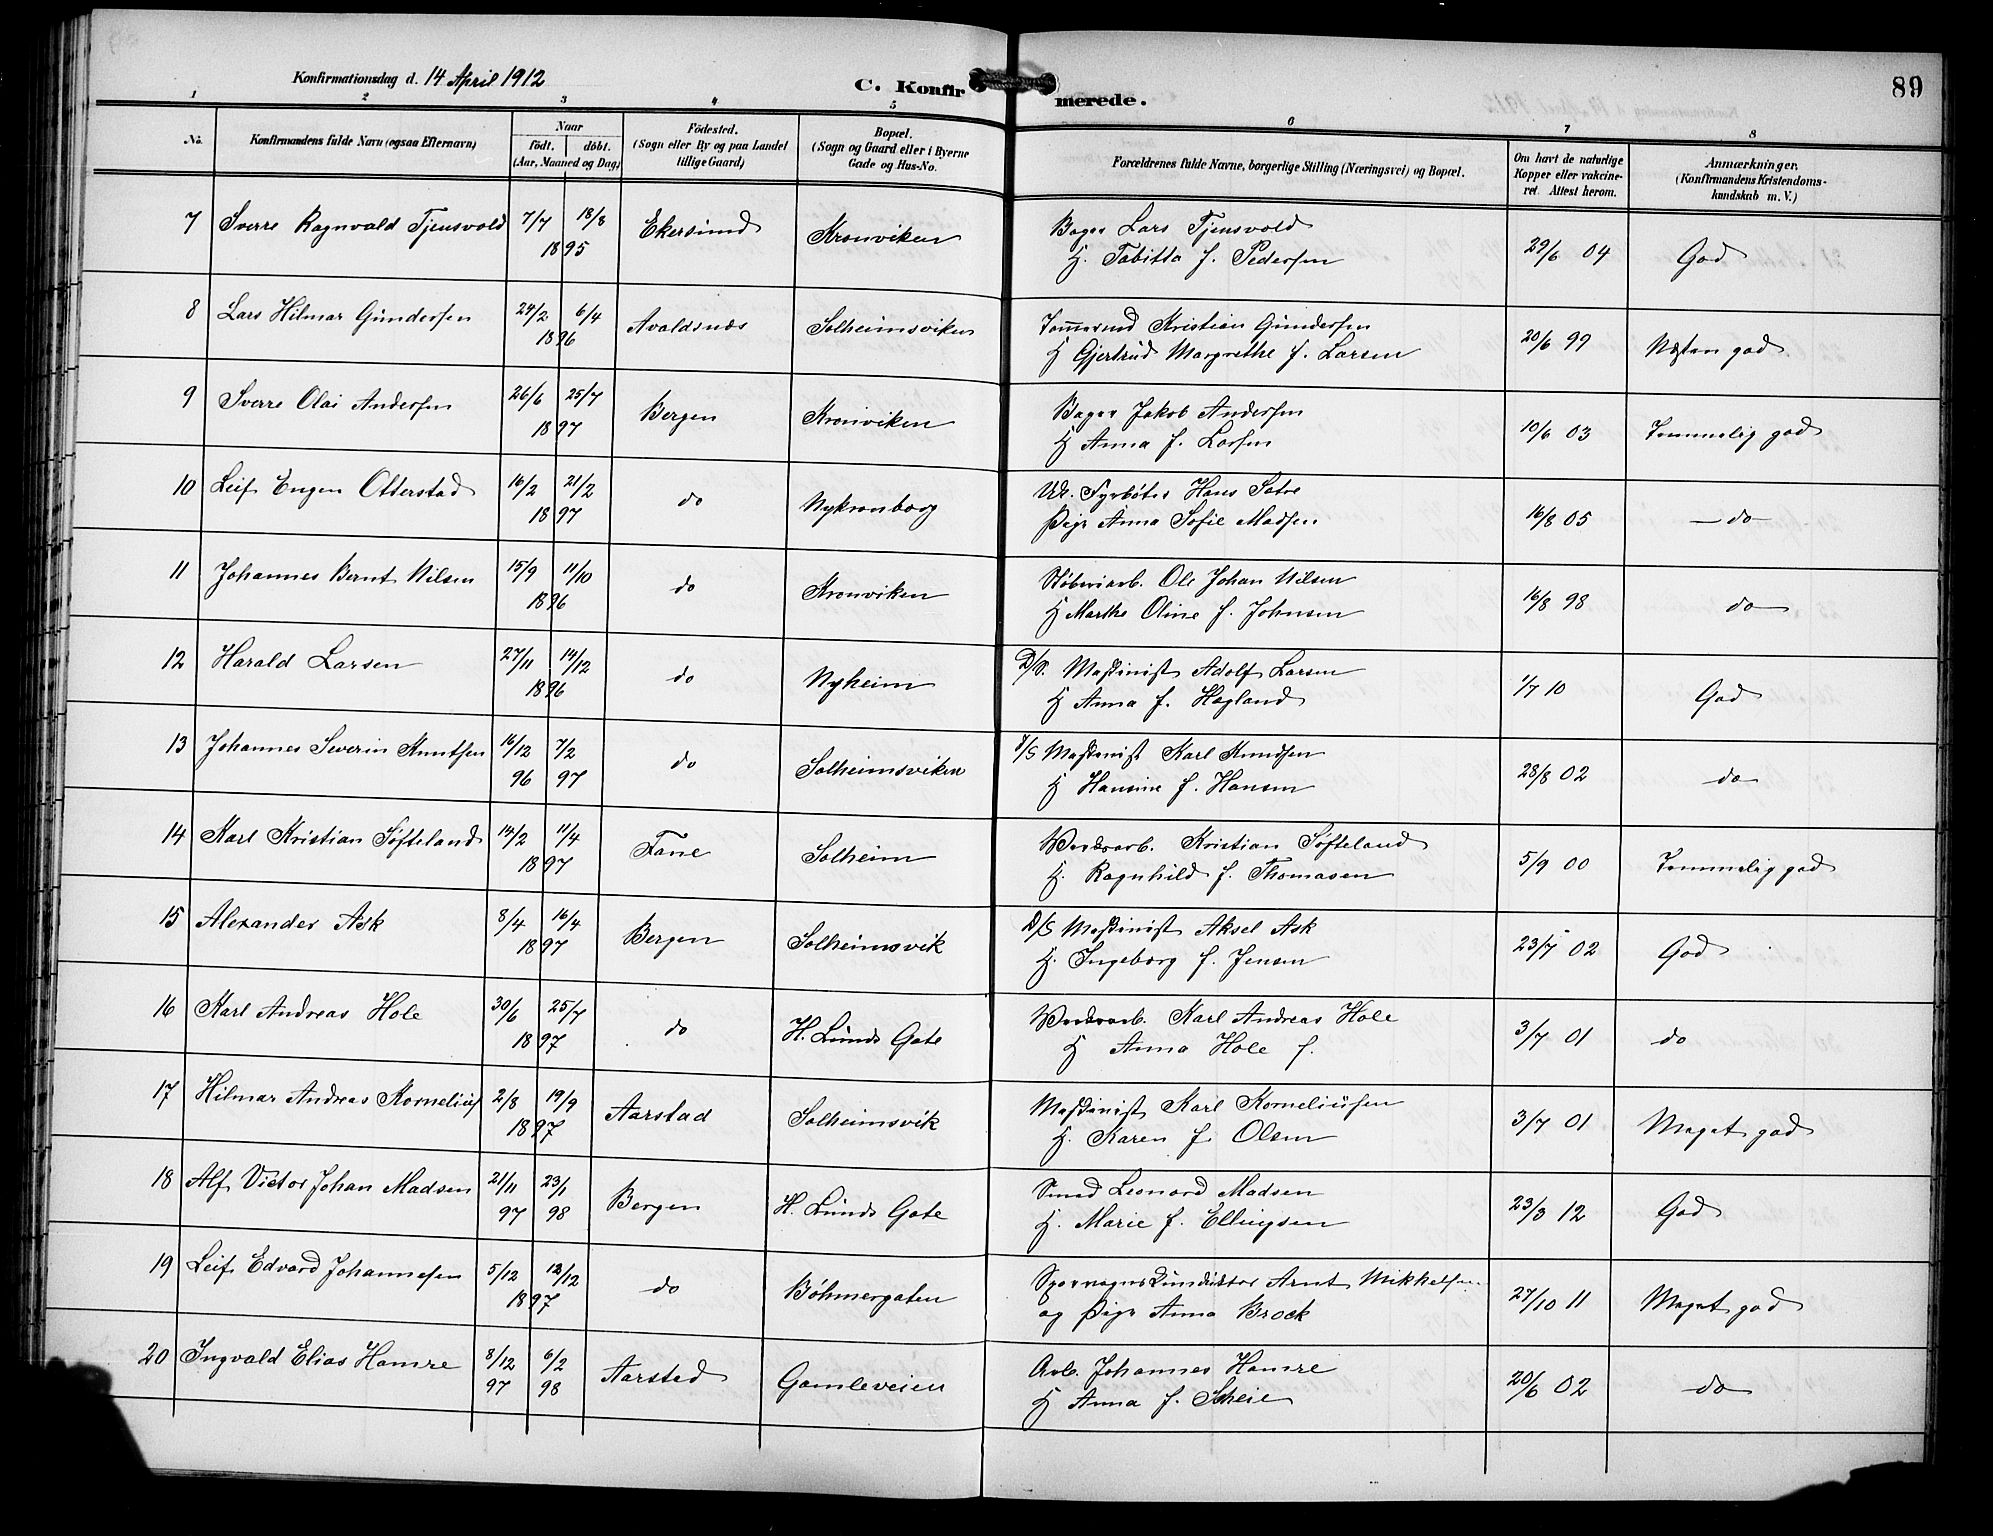 Konfirmationsdag d. 14 April 1912
C. Konfirmerede.
89
1 2 3 4 5 6 7 8
No.
Konfirmandens fulde Navn (ogsaa Efternavn)
Naar
født. døbt.
(Aar, Maaned og Dag)
Födested.
(Sogn eller By og paa Landet
tillige Gaard)
Bopæl.
(Sogn og Gaard eller i Byerne
Gade og Hus-No.
Forældrenes fulde Navne, borgerlige Stilling (Næringsvei) og Bopæl.
Om havt de naturlige
Kopper eller vakcine-
ret. Attest herom.
Anmærkninger,
(Konfirmandens Kristendoms-
kundskab m. V.)
7 Sverre Ragnvald Tjensvold 7/7 18/8 1895 Ekersund Kronviken
Bager Lars Tjensvold
H. Tabitta f. Pedersen
29/6 04 God
8 Lars Hilmar Gundersen 24/2 6/4 1896 Avaldsnæs Solheimsviken
Tømmermd Kristian Gundersen
H Gjertrud Margrethe f. Larsen
20/6 99 Næsten god
9 Sverre Olai Andersen 26/6 25/7 1897 Bergen Kronviken
Bager Jakob Andersen
H Anna f. Larsen
10/6 03 Temmelig god
10 Leif Engen Otterstad 16/2 21/2 1897 do Nykronborg
Uk. Fyrbøter Hans Satre
Pige Anna Sofie Madsen
16/8 05 — do —
11 Johannes Bernt Nilsen 15/9 11/10 1896 do Kronviken
Støberiarb. Ole Johan Nilsen
H Marthe Oline f. Johnsen
16/8 98 do
12 Harald Larsen 27/11 14/12 1896 do Nyheim
D/S. Maskinist Adolf Larsen
H Anna f. Hagland
1/7 10 God
13 Johannes Severin Knutsen 16/12 96 7/2 97 do Solheimsviken
D/S Maskinist Karl Knudsen
H Hansine f. Hansen
28/8 02 do
14 Karl Kristian Søfteland 14/2 11/4 1897 Fane Solheim
Verksarb. Kristian Søfteland
H. Ragnhild f. Thomasen
5/9 00 Temmelig god
15 Alexander Ask 8/4 16/4 1897 Bergen Solheimsvik
D/S Maskinist Aksel Ask
H. Ingeborg f. Jensen
23/7 02 God
16 Karl Andreas Hole 30/6 25/7 1897 do H. Lunds Gate
Verksarb. Karl Andreas Hole
H Anna Hole f.
3/7 01 do
17 Hilmar Andreas Kornelius 2/8 19/9 1897 Aarstad Solheimsvik
Maskinist Karl Korneliusen
H. Karen f. Olsen
3/7 01 Meget god
18 Alf Victor Johan Madsen 21/11 97 23/1 98 Bergen H. Lunds Gate
Smed Leonard Madsen
H. Marie f. Ellingsen
23/3 12 God
19 Leif Edvard Johannesen 5/12 12/12 1897 do Bøhmergaten
Sporvogns Kunduktør Arnt Mikkelsen
og Pige Anna Brock
27/10 11 Meget god
20 Ingvald Elias Hamre 8/12 97 6/2 98 Aarstad Gamleveien
Arb. Johannes Hamre
H Anna f. Skeie
20/6 02 do